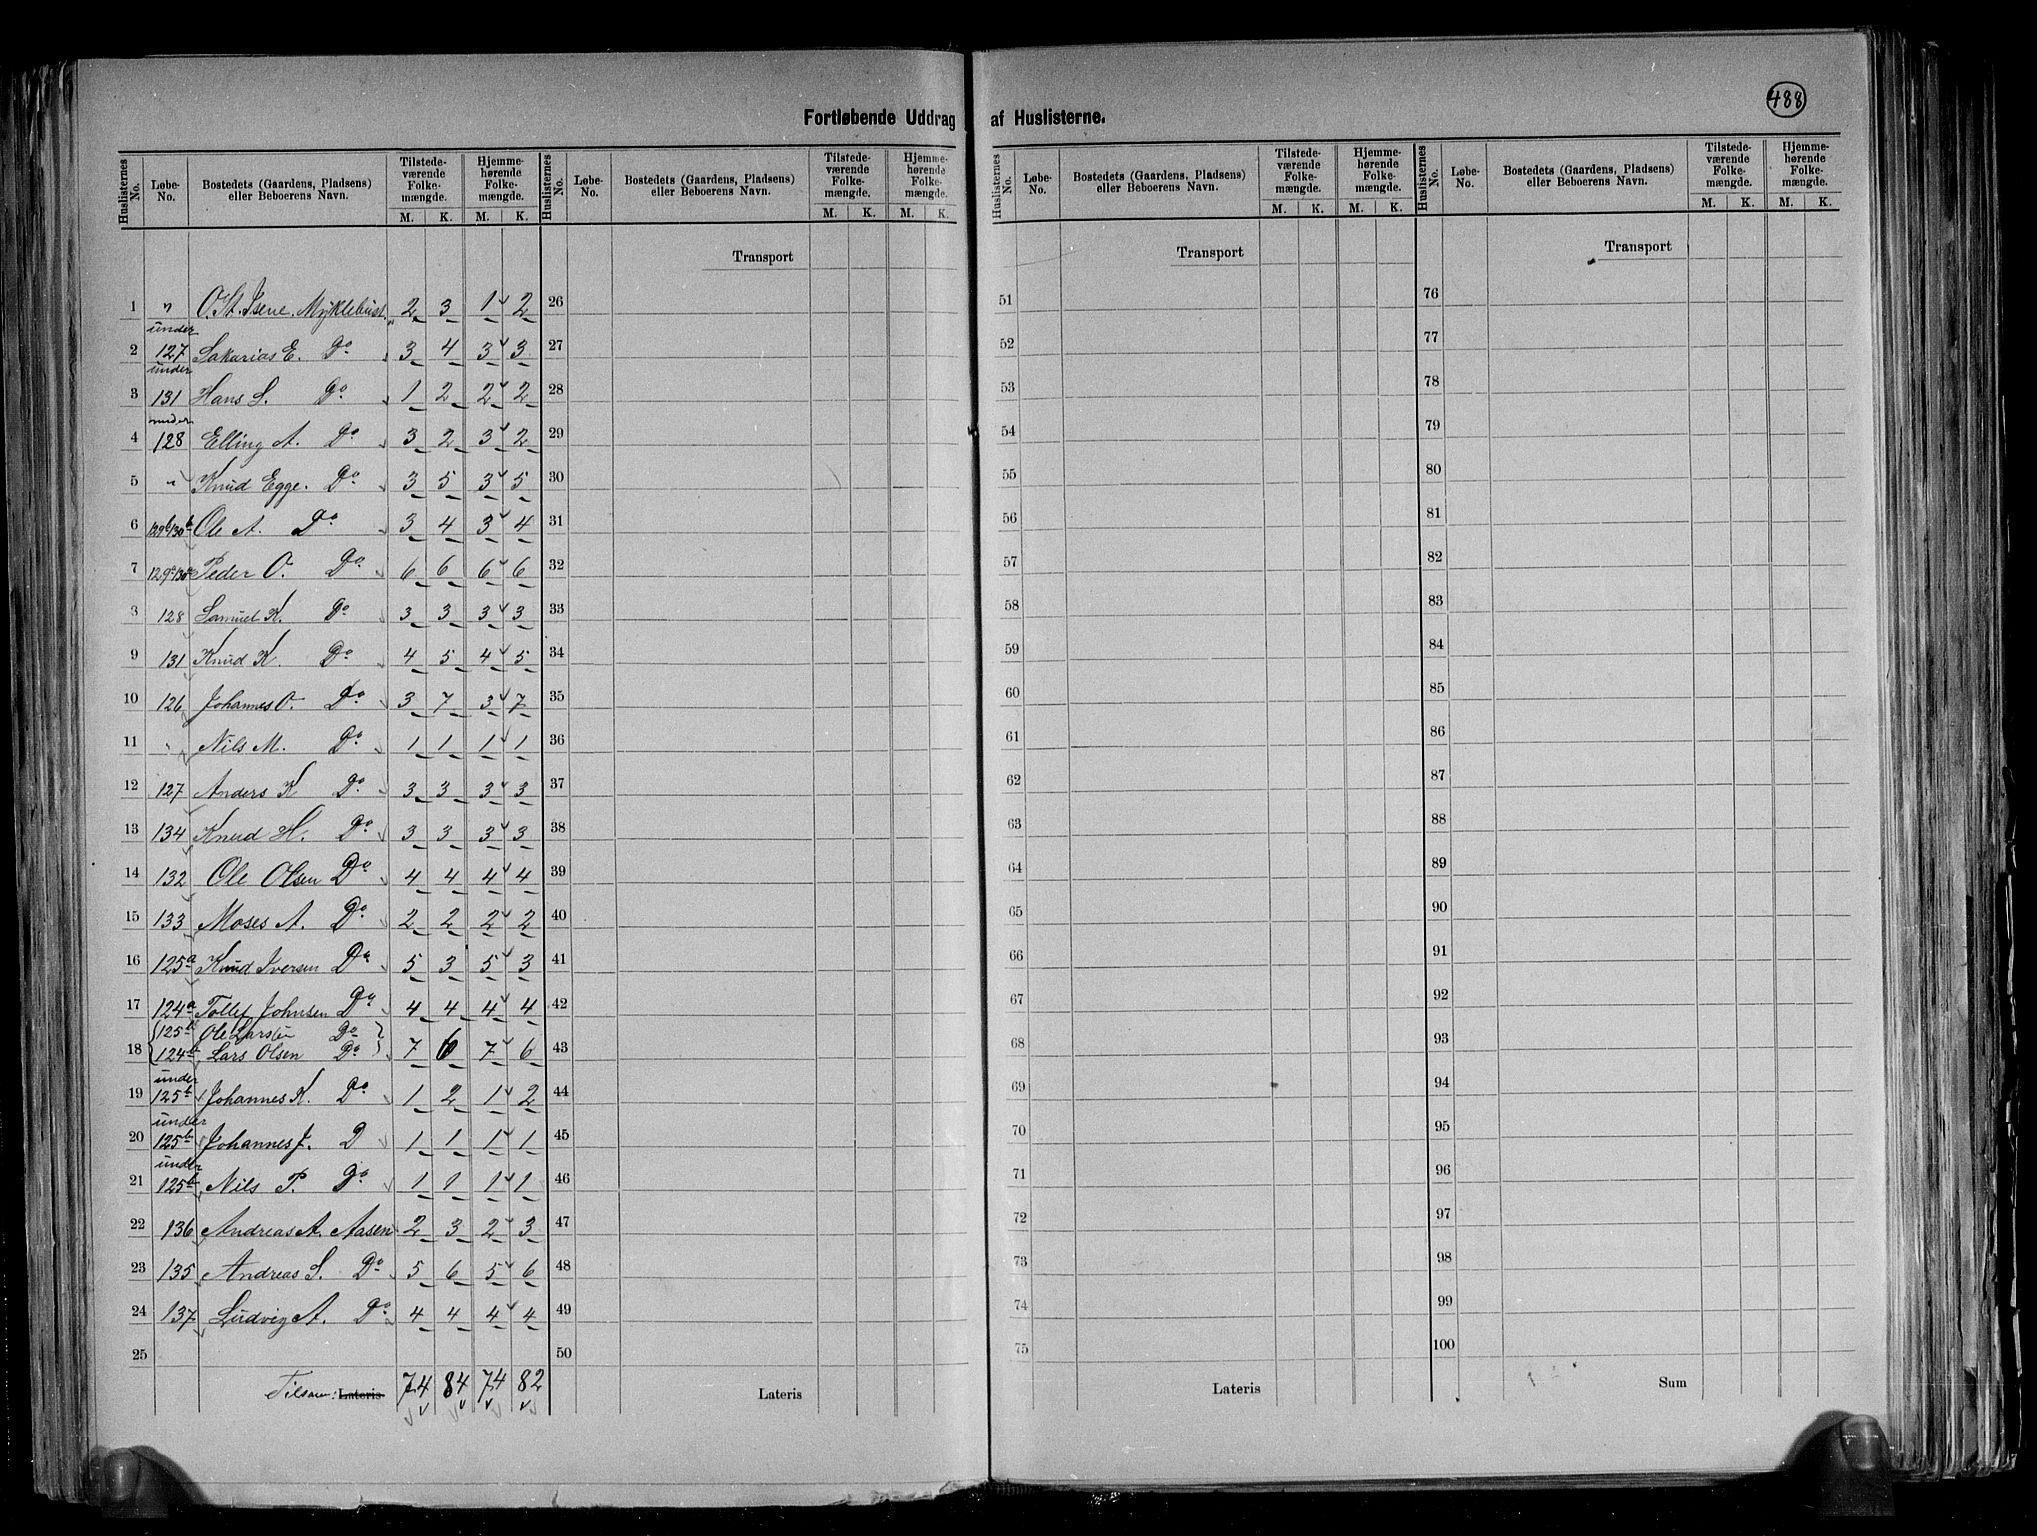 488
Fortløbende Uddrag af Huslisterne.
Huslisternes No. Løbe-No. Bostedets (Gaardens, Pladsens) eller Beboerens Navn. Tilstedeværende Folkemængde. M. K. Hjemmehørende Folkemængde. M. K.
Huslisternes No. Løbe-No. Bostedets (Gaardens, Pladsens) eller Beboerens Navn. Tilstedeværende Folkemængde. M. K. Hjemmehørende Folkemængde. M. K.
Huslisternes No. Løbe-No. Bostedets (Gaardens, Pladsens) eller Beboerens Navn. Tilstedeværende Folkemængde. M. K. Hjemmehørende Folkemængde. M. K.
Huslisternes No. Løbe-No. Bostedets (Gaardens, Pladsens) eller Beboerens Navn. Tilstedeværende Folkemængde. M. K. Hjemmehørende Folkemængde. M. K.
Transport Transport Transport
1 " O. St. Isene. Myklebust. 2 3 1 2 26 51 76
under
2 127 Sakarias E. Do 3 4 3 3 27 52 77
under
3 131 Hans S. Do 1 2 2 2 28 53 78
under
4 128 Elling A. Do 3 2 3 2 29 54 79
5 " Knud Egge. Do 3 5 3 5 30 55 80
6 129b 130b Ole A. Do 3 4 3 4 31 56 81
7 129a 130a Peder O. Do 6 6 6 6 32 57 82
8 128 Samuel K. Do 3 3 3 3 33 58 83
9 131 Knud K. Do 4 5 4 5 34 59 84
10 126 Johannes O. Do 3 7 3 7 35 60 85
11 " Nils M. Do 1 1 1 1 36 61 86
12 127 Anders K Do 3 3 3 3 37 62 87
13 134 Knud H. Do 3 3 3 3 38 63 88
14 132 Ole Olsen Do 4 4 4 4 39 64 89
15 133 Moses A. Do 2 2 2 2 40 65 90
16 125a Knud Iversen Do 5 3 5 3 41 66 91
17 124a Tollef Johnsen Do 4 4 4 4 42 67 92
125b Ole Larsen Do
18 124b Lars Olsen Do 7 6 7 6 43 68 93
under
19 125b Johannes K. Do 1 2 1 2 44 69 94
under
20 125b Johannes J. D 1 1 1 1 45 70 95
under
21 125b Nils P. Do 1 1 1 1 46 71 96
22 136 Andreas A. Aasen 2 3 2 3 47 72 97
23 135 Andreas S. Do 5 6 5 6 48 73 98
24 137 Ludvig A. Do 4 4 4 4 49 74 99
25 50 75 100
Tilsam: Lateris 74 84 74 82 Lateris Lateris Sum